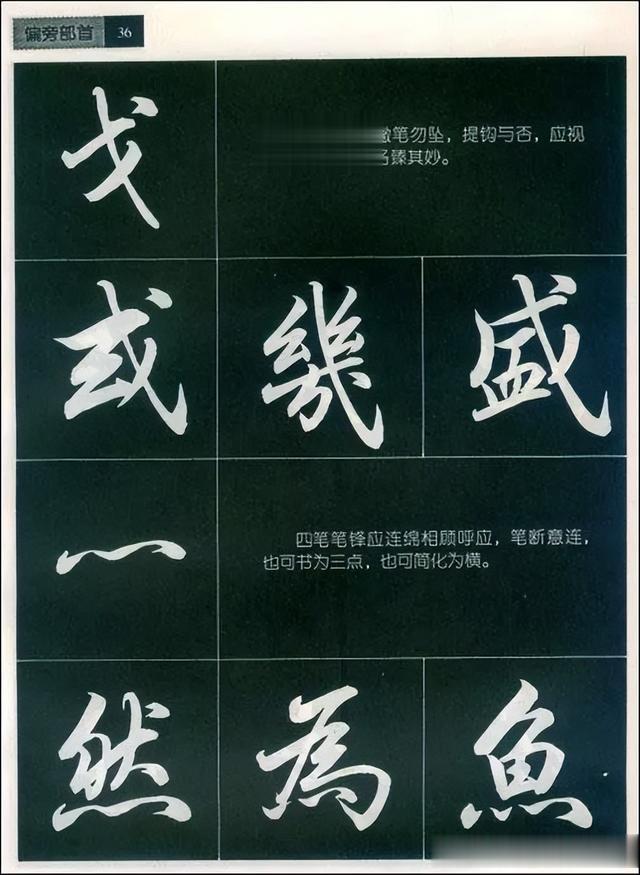 偏旁部首 36
戈
笔勿坠，提钩与否，应视
臻其妙。
或 幾 盛
灬
四笔笔锋应连绵相顾呼应，笔断意连，
也可书为三点，也可简化为横。
然 為 魚